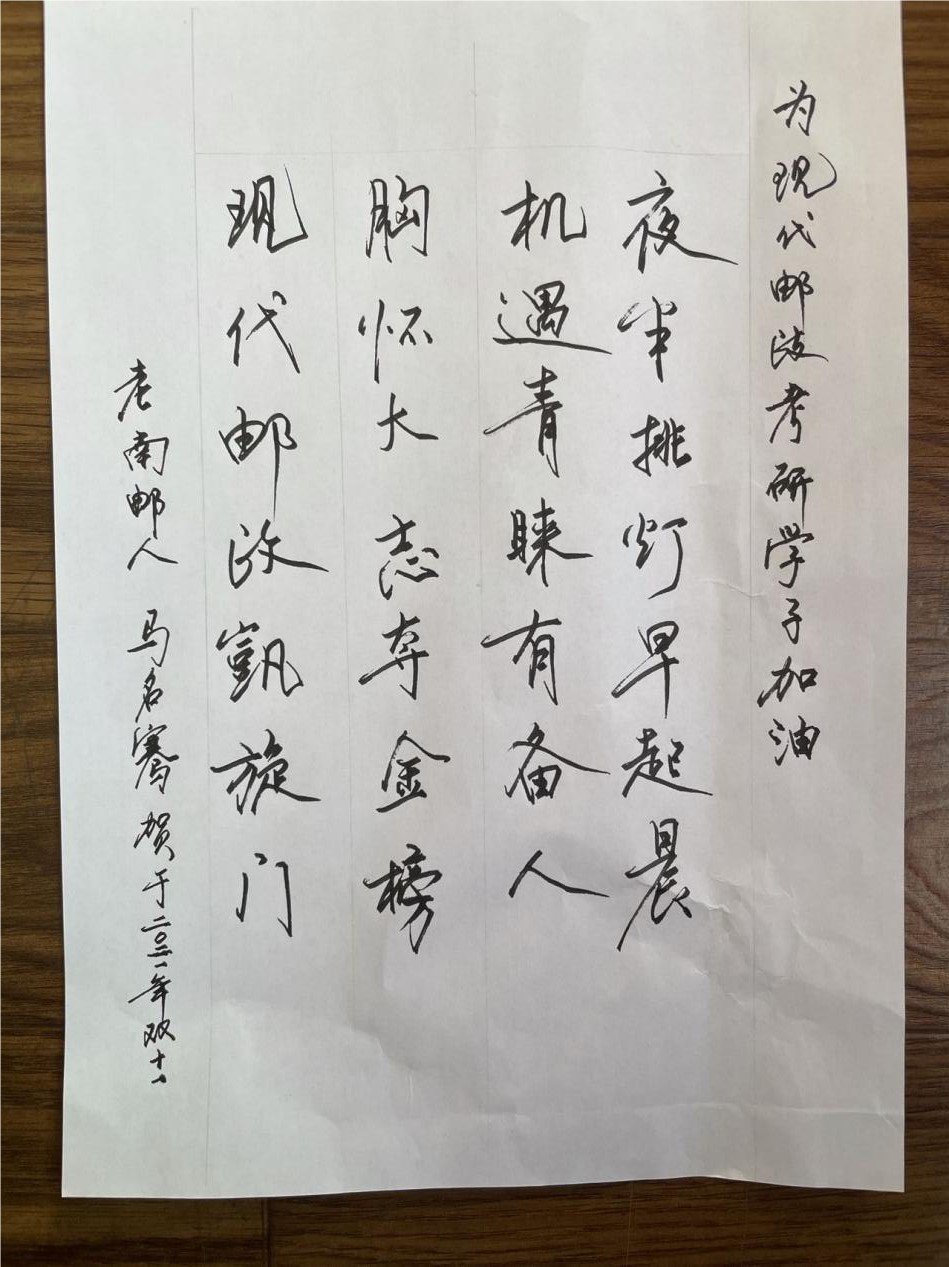 为现代邮政考研学子加油
夜半挑灯早起晨
机遇青睐有备人
胸怀大志夺金榜
现代邮政凯旋门
老南邮人 马名骞贺于二〇二一年双十一